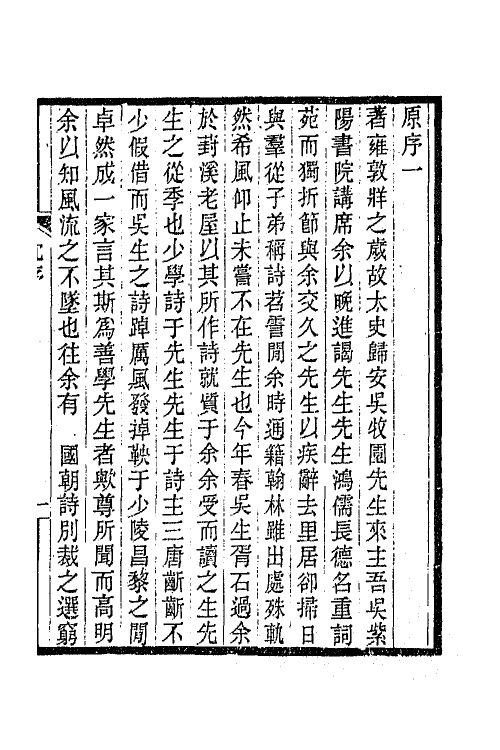 原序一
著雍敦牂之歲故太史歸安吳牧園先生來主吾吳紫
陽書院講席余以晩進謁先生先生鴻儒長德名重詞
苑而獨折節與余交久之先生以疾辭去里居卻掃日
與羣從子弟稱詩苕霅閒余時通籍翰林雖出處殊軌
然希風仰止未嘗不在先生也今年春吳生胥石過余
於葑溪老屋以其所作詩就質于余余受而讀之生先
生之從季也少學詩于先生先生于詩主三唐齗齗不
少假借而吳生之詩踔厲風發掉鞅于少陵昌黎之閒
卓然成一家言其斯爲善學先生者歟尊所聞而高明
余以知風流之不墜也往余有　國朝詩別裁之選窮
一